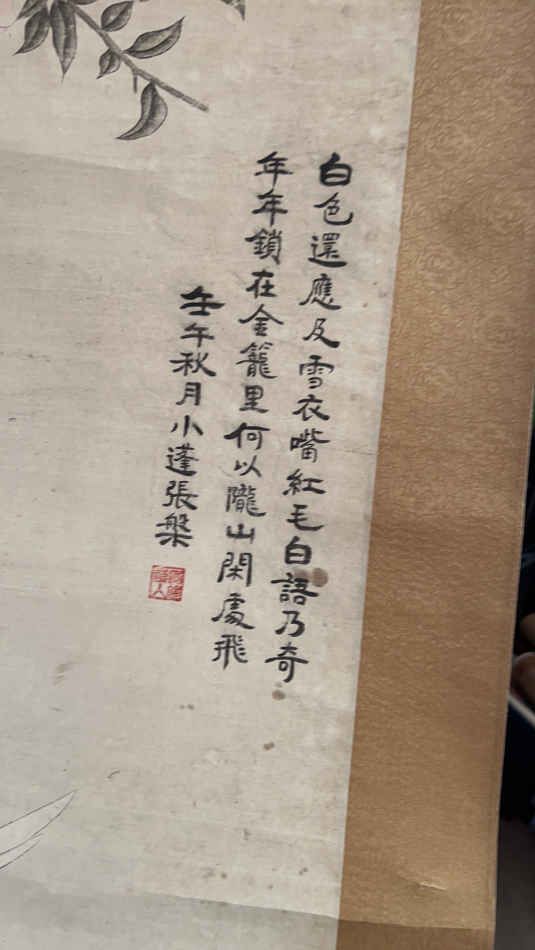 白色還應及雪衣嘴紅毛白語乃奇
年年鎖在金籠里何以隴山閑處飛
壬午秋月小蓬張槃